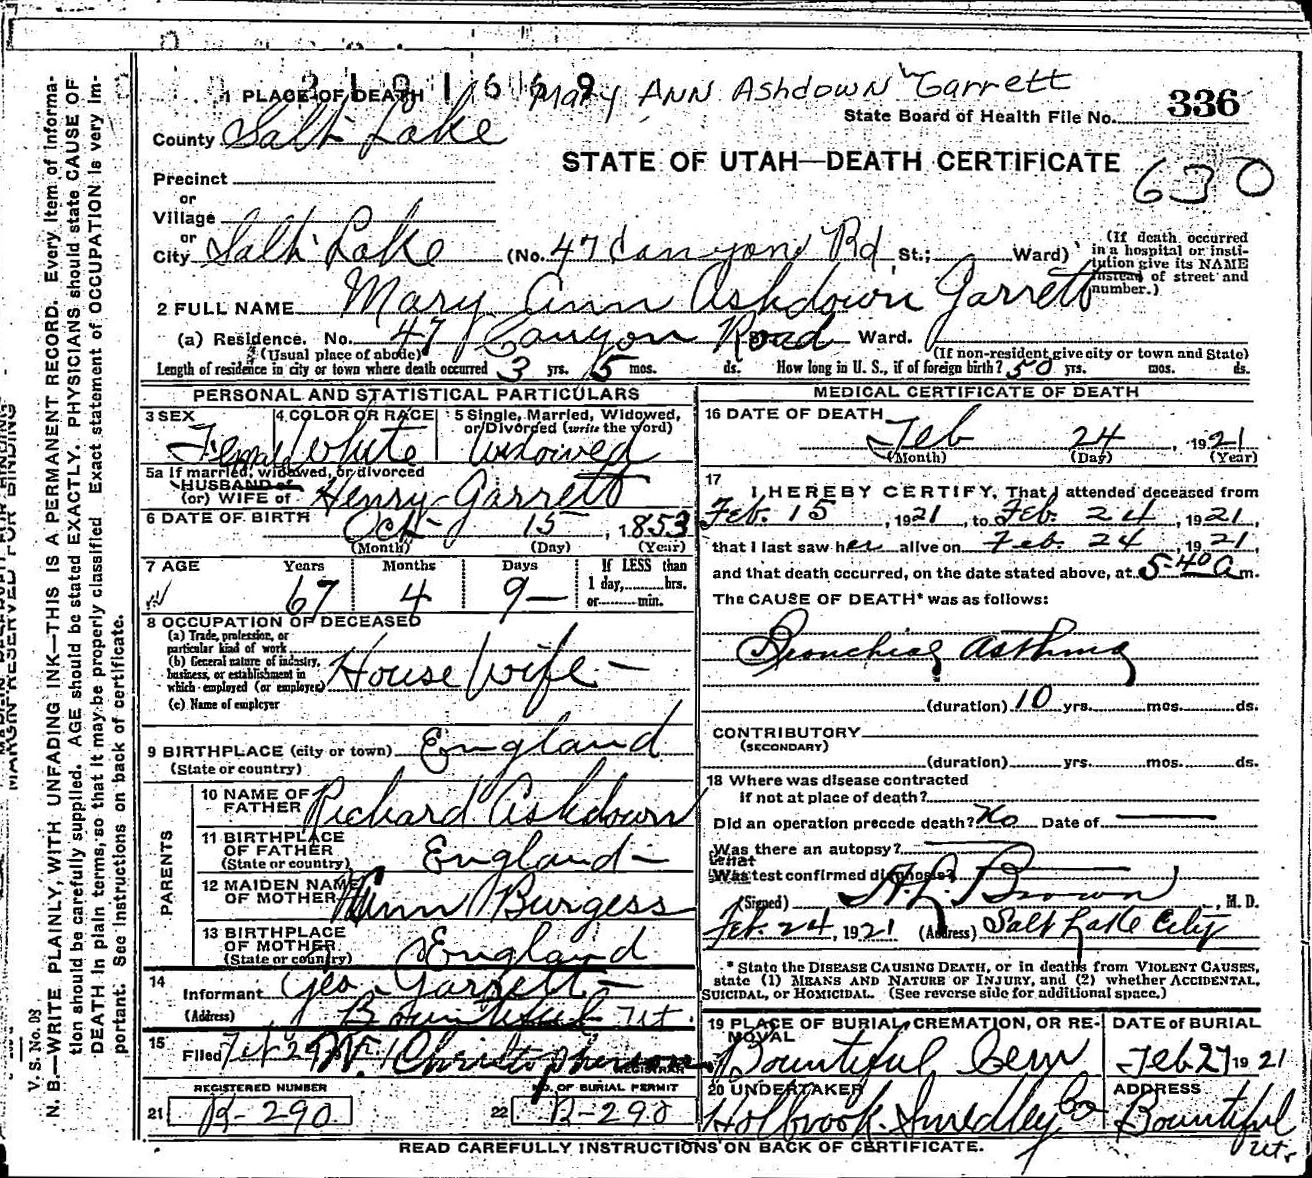 2101669
Mary Ann Ashdown Garrett
1 PLACE OF DEATH
State Board of Health File No. 336
County Salt Lake
STATE OF UTAH—DEATH CERTIFICATE
630
Precinct
or
Village
or
City Salt Lake (No. 47 Canyon Rd St.; Ward)
(If death occurred in a hospital or insti-
tution give its NAME
instead of street and
number.)
2 FULL NAME Mary Ann Ashdown Garrett
(a) Residence. No. 47 Canyon Road Ward.
(Usual place of abode) (If non-resident give city or town and State)
Length of residence in city or town where death occurred 3 yrs. 5 mos. ds. How long in U. S., if of foreign birth? 50 yrs. mos. ds.
PERSONAL AND STATISTICAL PARTICULARS
3 SEX Female
4 COLOR OR RACE White
5 Single, Married, Widowed,
or Divorced (write the word)
Widowed
5a If married, widowed, or divorced
HUSBAND of
(or) WIFE of Henry Garrett
6 DATE OF BIRTH Oct 15, 1853
(Month) (Day) (Year)
7 AGE Years Months Days If LESS than
1 day, hrs.
or min.
67 4 9—
8 OCCUPATION OF DECEASED
(a) Trade, profession, or
particular kind of work
(b) General nature of industry,
business, or establishment in
which employed (or employer) House wife —
(c) Name of employer
9 BIRTHPLACE (city or town) England
(State or country)
PARENTS
10 NAME OF
FATHER Richard Ashdown
11 BIRTHPLACE
OF FATHER England —
(State or country)
12 MAIDEN NAME
OF MOTHER Ann Burgess
13 BIRTHPLACE
OF MOTHER England
(State or country)
14 Informant Geo Garrett —
(Address) Bountiful Ut.
15 Filed Christopherson
REGISTRAR
REGISTERED NUMBER
21 B-290
NO. OF BURIAL PERMIT
22 B-290
MEDICAL CERTIFICATE OF DEATH
16 DATE OF DEATH
Feb 24, 1921
(Month) (Day) (Year)
17
I HEREBY CERTIFY, That I attended deceased from
Feb. 15, 1921, to Feb. 24, 1921,
that I last saw her alive on Feb. 24, 1921,
and that death occurred, on the date stated above, at 5-40 a m.
The CAUSE OF DEATH* was as follows:
Bronchial Asthma
(duration) 10 yrs. mos. ds.
CONTRIBUTORY
(SECONDARY)
(duration) yrs. mos. ds.
18 Where was disease contracted
if not at place of death?
Did an operation precede death? No Date of
Was there an autopsy?
What test confirmed diagnosis?
(Signed) Brown, M. D.
Feb. 24, 1921 (Address) Salt Lake City
* State the DISEASE CAUSING DEATH, or in deaths from VIOLENT CAUSES,
state (1) MEANS AND NATURE OF INJURY, and (2) whether ACCIDENTAL,
SUICIDAL, or HOMICIDAL. (See reverse side for additional space.)
19 PLACE OF BURIAL, CREMATION, OR RE-
MOVAL
Bountiful Cem
DATE OF BURIAL
Feb 27 1921
20 UNDERTAKER
Holbrook Smedley Co
ADDRESS
Bountiful
Ut.
READ CAREFULLY INSTRUCTIONS ON BACK OF CERTIFICATE.
MARGIN RESERVED FOR BINDING
V. S. No. D8
N. B.—WRITE PLAINLY, WITH UNFADING INK—THIS IS A PERMANENT RECORD. Every item of informa-
tion should be carefully supplied. AGE should be stated EXACTLY. PHYSICIANS should state CAUSE OF
DEATH in plain terms, so that it may be properly classified. Exact statement of OCCUPATION is very im-
portant. See instructions on back of certificate.